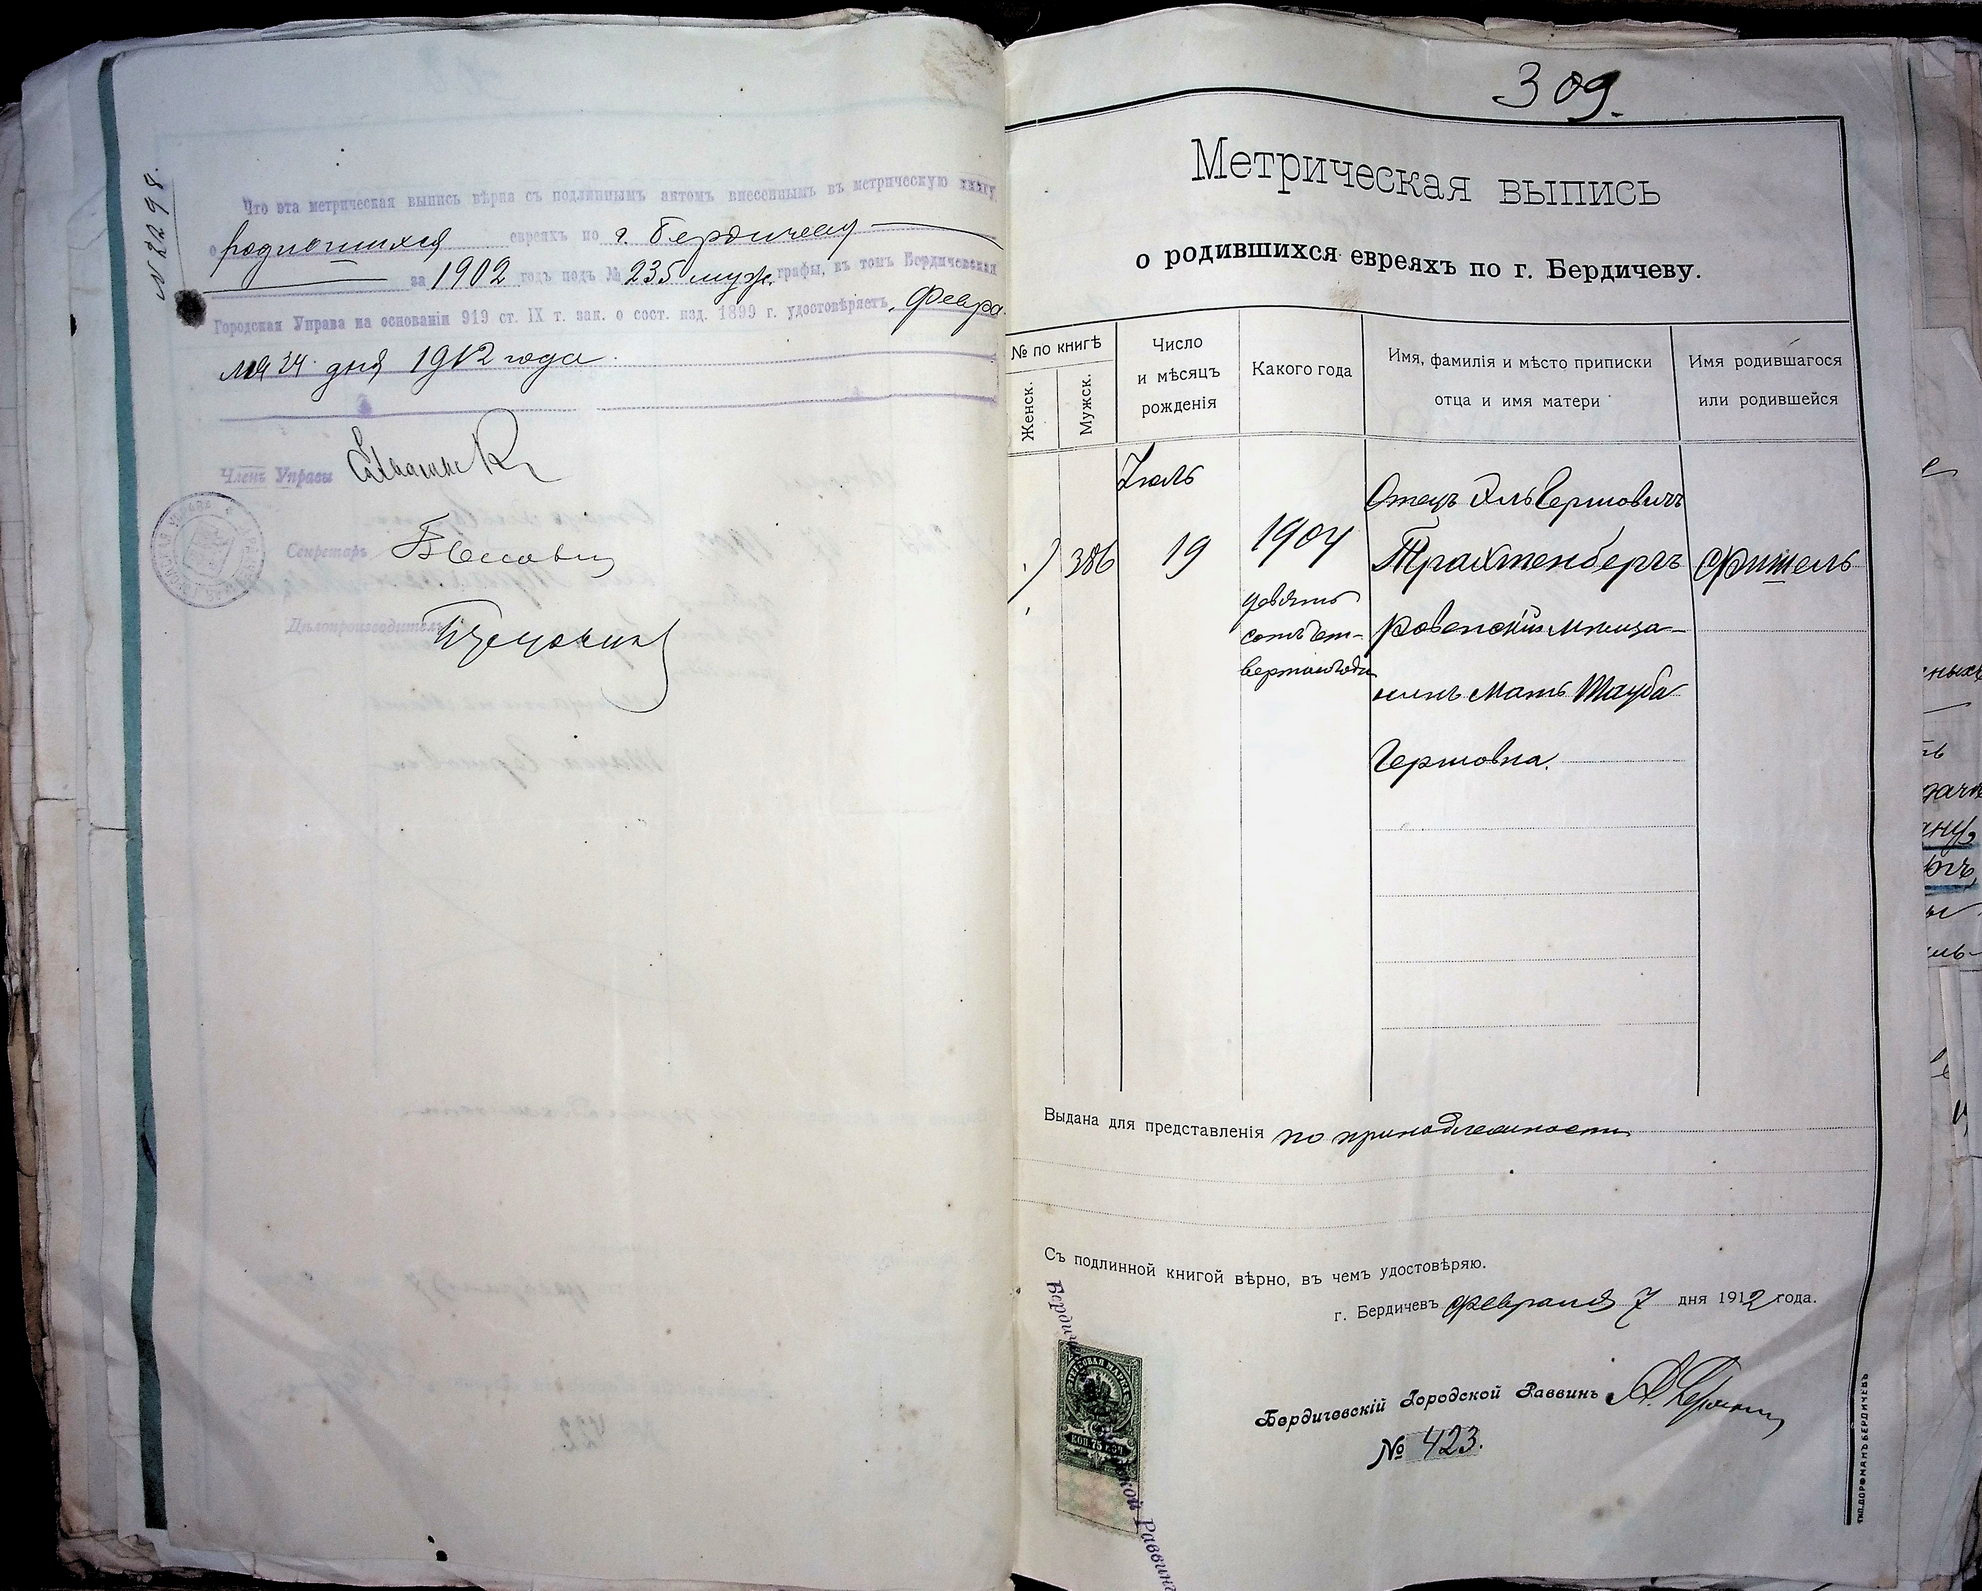 № 2298.
Что эта метрическая выпись вѣрна съ подлиннымъ актомъ внесеннымъ въ метрическую книгу
о родившихся евреяхъ по г. Бердичеву
за 1902 годъ подъ № 235 муж. графы, въ томъ Бердичевская
Городская Управа на основаніи 919 ст. IX т. зак. о сост. изд. 1899 г. удостовѣряетъ, Февра
ля 24 дня 1912 года.
Членъ Управы
Секретарь
Дѣлопроизводитель
309.
Метрическая выпись
о родившихся евреяхъ по г. Бердичеву.
№ по книгѣ
Женск.
Мужск.
Число
и мѣсяцъ
рожденія
Какого года
Имя, фамилія и мѣсто приписки
отца и имя матери
Имя родившагося
или родившейся
Іюль
19
386
1904
девять
сотъ чет-
вертаго года
Отецъ Иль Гершовичъ
Трахтенбергъ
Ровенскій мѣща-
нинъ Мать Тауба
Гершовна.
Фишель
Выдана для представленія по принадлежности
Съ подлинной книгой вѣрно, въ чемъ удостовѣряю.
г. Бердичевъ Февраля 7 дня 1912 года.
Бердичевскій Городской Раввинъ
№ 423.
ГЕРБОВАЯ МАРКА
КОП. 75 КОП.
Раввинъ
ТИП. ДОРФМАНЪ БЕРДИЧЕВЪ